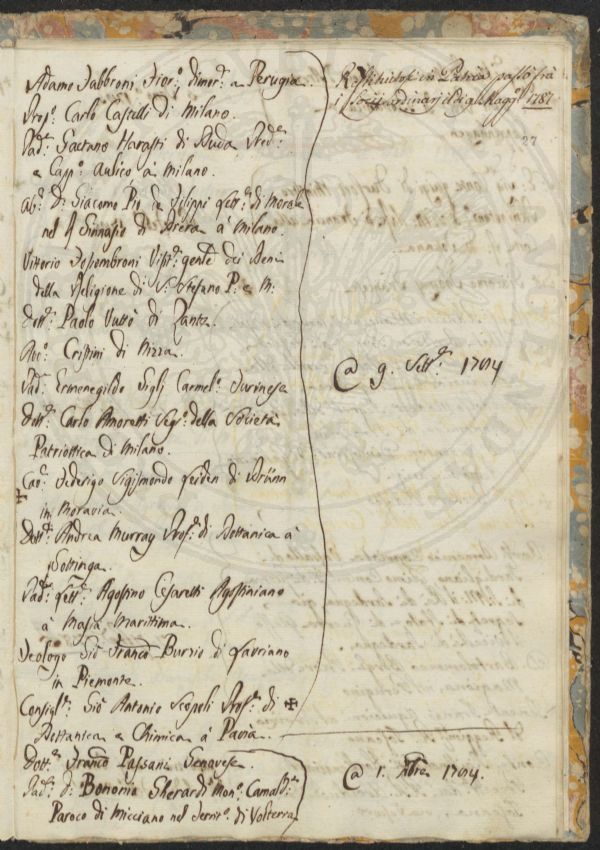 Adamo Fabbroni Fior:º dimor:e a Perugia.
Prof:r Carlo Castelli di Milano.
Pad:e Gaetano Harasti di Buda Pred:re
e Capp:º Aulico à Milano.
Ab:e D: Giacomo Pio de Filippi Lett:e di Morale
nel Ginnasio di Brera à Milano.
Vittorio Fossombroni Visit:e gen:le dei Beni
della Religione di S. Stefano P: e M:
Dott:e Paolo
Avv:º Crispini di Nizza.
Pad:e Ermenegildo Sigli Carmel:º Turinese
Dott:e Carlo Amoretti Seg:º della Società
Patriottica di Milano.
Cav:e Federigo Sigismondo di Brünn
in Moravia.
Dott:e Andrea Murray Prof:e di Bottanica à
Gottinga.
Pad:e Lett:e Agostino Cesaretti Agostiniano
à Massa Marittima.
Teologo Gio Franco Burzio di
in Piemonte.
Consigl:e Gio Antonio Scopoli Prof:e di
Bottanica e Chimica à Pavia.
Dott:e Franco Passani Genovese.
Pad:e D: Bononio Gherardi Mon:º Camald:e
Paroco di Micciano nel Territ:º di Volterra
Restituitosi in Patria passò frà
i Socij ordinarj il dì 9 Magg:º 1787
27
@ 9. Sett:e 1784
@ 1. Xbre 1784.